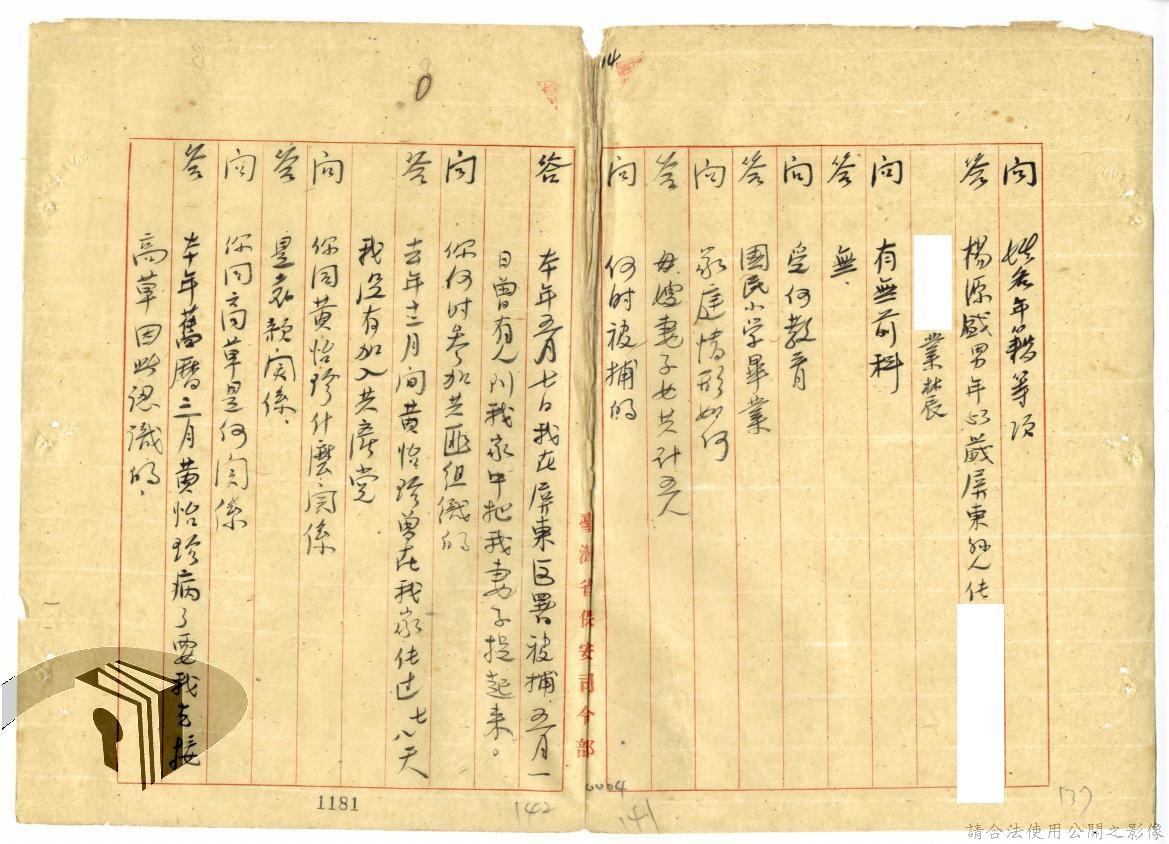 問 姓名年籍等項
答 楊源盛男年 歲屏東縣人住
業農
問 有無前科
答 無、
問 受何教育
答 國民小学畢業
问 家庭情形如何
答 母嫂妻子女共计五人
问 何时被捕的
答 本年五月七日我在屏東区署被捕五月一
日曾有人到我家中把我妻子捉起来。
问 你何时参加共匪组織的
答 去年十二月间黄怡珍曾在我家住过七八天
我没有加入共產党
问 你同黄怡珍什麼関係
答 是表親関係、
问 你同高草是何関係
答 本年舊曆三月黄怡珍病了要我去接
高草因此认識的、
臺灣省保安司令部
14
0004
137
141
142
1181
請合法使用公開之影像